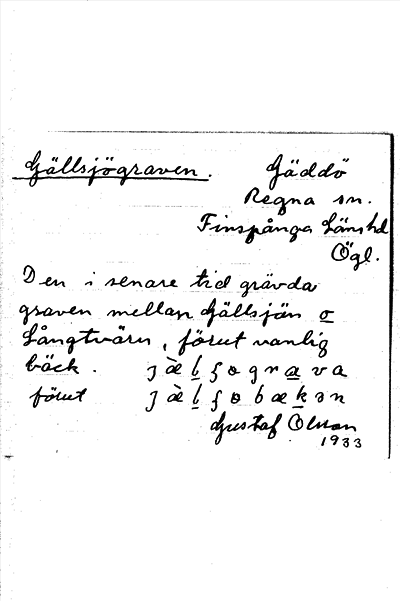 Gällsjögraven. Gäddö
Regna sn.
Finspånga Länshd
Ögl.
Den i senare tid grävda
graven mellan Gällsjön o
Långtvärn, förut vanlig
bäck. ȷ æ̀ l ʂ ɵ g r a v a
förut ȷ æ̀ l ʂ ɵ b æ k ə n
Gustaf Olsson
1933